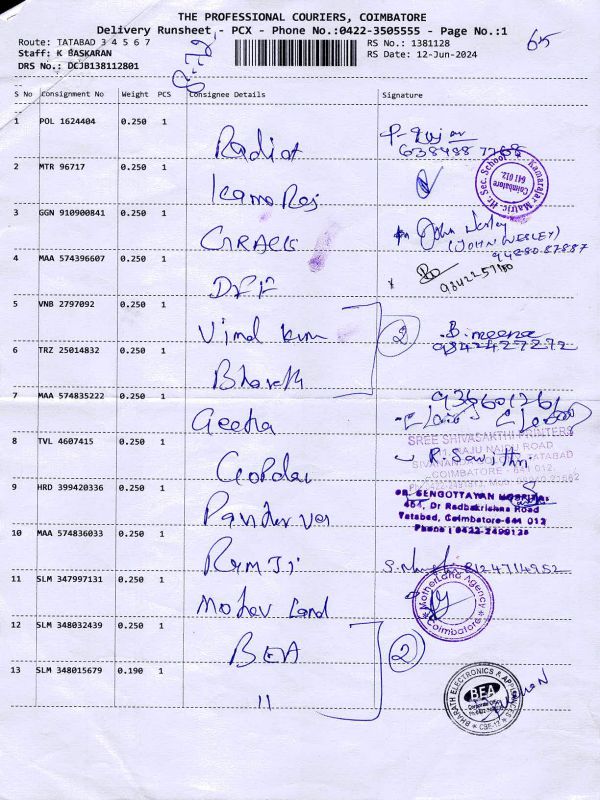 THE PROFESSIONAL COURIERS, COIMBATORE
Delivery Runsheet - PCX - Phone No.:0422-3505555 - Page No.:1
Route: TATABAD 3 4 5 6 7
RS No.: 1381128
65
Staff: K BASKARAN
RS Date: 12-Jun-2024
DRS No.: DCJB138112801
S No Consignment No Weight PCS Consignee Details Signature
1 POL 1624404 0.250 1
Radiat
2 MTR 96717 0.250 1
Kamaraj Matric. Hr. Sec. School
Coimbatore
641 012.
3 GGN 910900841 0.250 1
John Wesley
(JOHN WESLEY)
94880 87887
4 MAA 574396607 0.250 1
DFF
5 VNB 2797092 0.250 1
Vimal Kum
2
B. meena
9842427272
6 TRZ 25014832 0.250 1
Bharath
7 MAA 574835222 0.250 1
Geetha
SREE SHIVASAKTHI PRINTERS
RAJU NAIDU ROAD
TATABAD
COIMBATORE - 641 012.
8 TVL 4607415 0.250 1
Gopal
R. Savithri
9 HRD 399420336 0.250 1
DR. SENGOTTAYAN HOSPITAL
464, Dr Radhakrishna Road
Tatabad, Coimbatore-641 012
Phone : 0422-2499125
10 MAA 574836033 0.250 1
Ramji
8124714952
11 SLM 347997131 0.250 1
Mother Land
MotherLand Agency
Coimbatore
12 SLM 348032439 0.250 1
BEA
2
13 SLM 348015679 0.190 1
"
BHARATH ELECTRONICS & APPLIANCES
BEA
Corporate Office
CBE-12